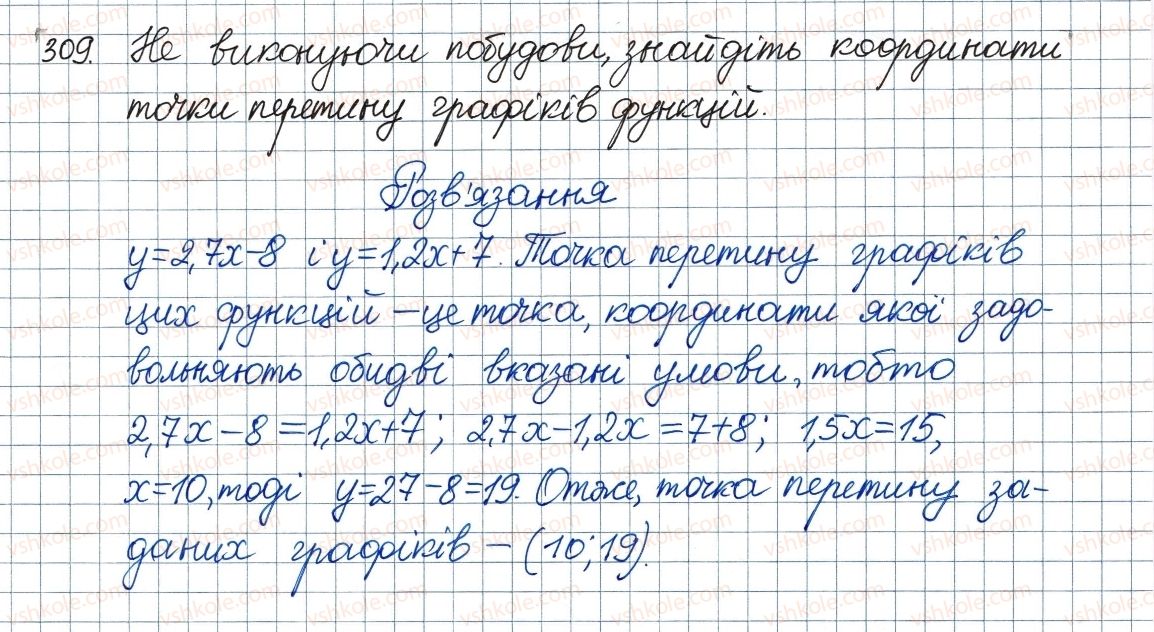 309. Не виконуючи побудови, знайдіть координати
точки перетину графіків функцій.
Розв'язання
y=2,7x-8 і y=1,2x+7. Точка перетину графіків
цих функцій – це точка, координати якої задо-
вольняють обидві вказані умови, тобто
2,7x-8=1,2x+7; 2,7x-1,2x=7+8; 1,5x=15,
x=10, тоді y=27-8=19. Отже, точка перетину за-
даних графіків – (10;19).